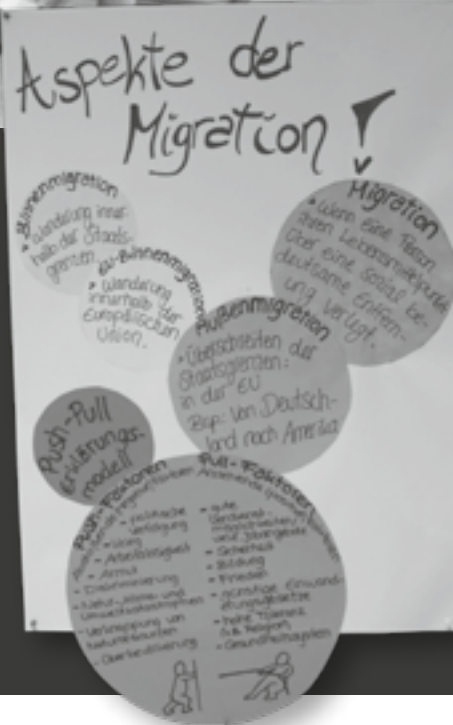 Aspekte der
Migration!
Binnenmigration
• Wanderung inner-
halb der Staats-
grenzen
EU-Binnenmigration
• Wanderung
innerhalb der
Europäischen
Union.
Migration
• Wenn eine Person
ihren Lebensmittelpunkt
über eine sozial be-
deutsame Entfern-
ung verlegt.
Außenmigration
• Überschreiten der
Staatsgrenzen:
in der EU
Bsp: Von Deutsch-
land nach Amerika
Push-Pull
erklärungs-
modell
Push-Faktoren
- politische
Verfolgung
- Krieg
- Arbeitslosigkeit
- Armut
- Diskriminierung
- Natur-, Klima- und
Umweltkatastrophen
- Verknappung von
Naturressourcen
- Überbevölkerung
Pull-Faktoren
- gute
Verdienst-
möglichkeiten/
Jobangebote
- Sicherheit
- Bildung
- Frieden
- günstige Einwand-
erungsgesetze
- hohe Toleranz
(z.B. Religion)